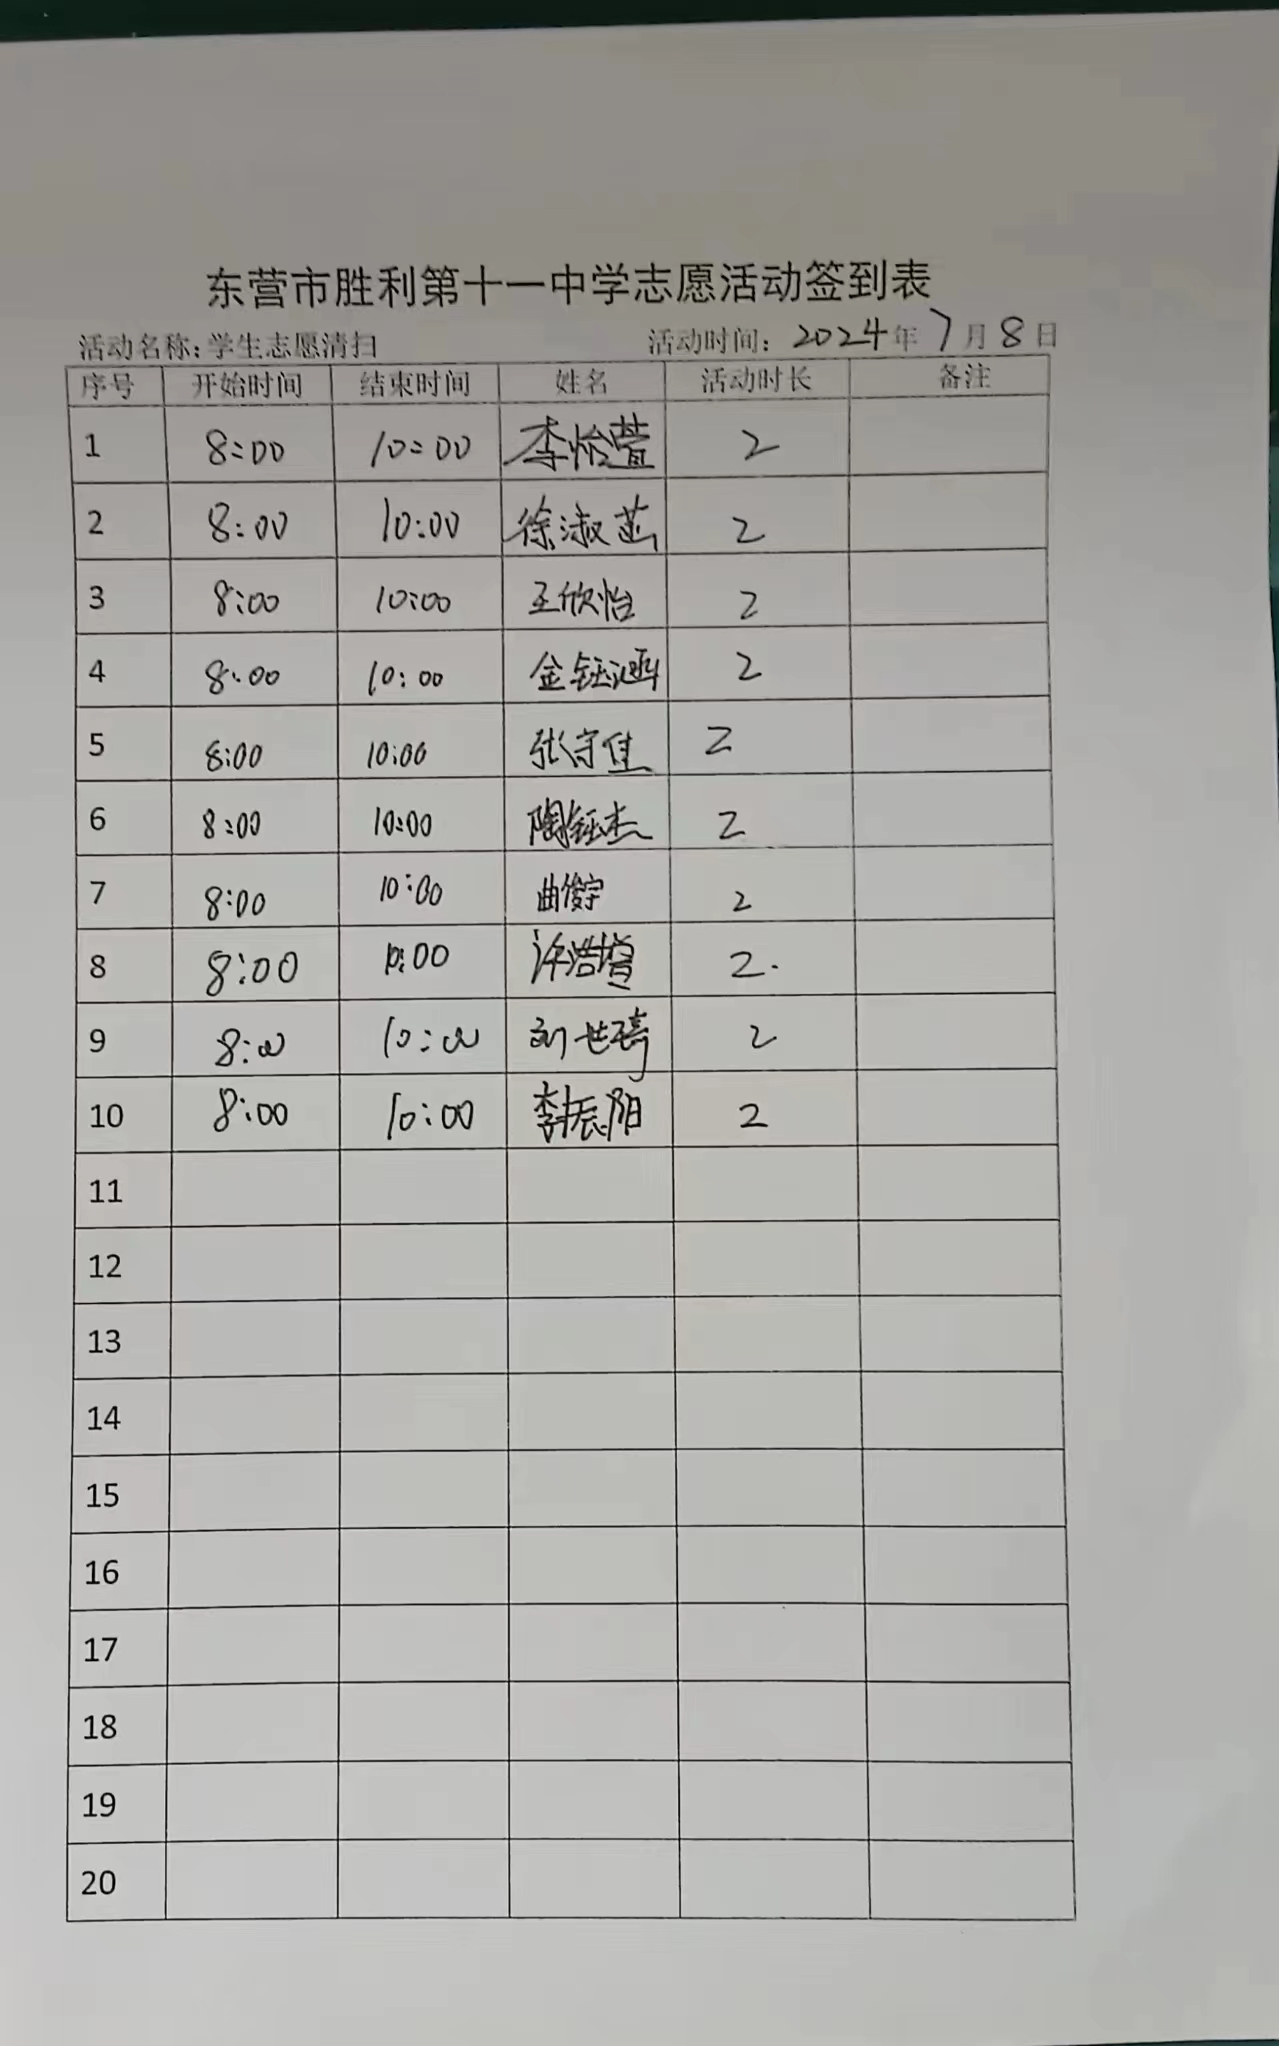 东营市胜利第十一中学志愿活动签到表
活动名称：学生志愿清扫 活动时间：2024年7月8日
序号 开始时间 结束时间 姓名 活动时长 备注
1 8:00 10:00 李怡萱 2
2 8:00 10:00 徐淑茁 2
3 8:00 10:00 王欣怡 2
4 8:00 10:00 金钰涵 2
5 8:00 10:00 张守佳 2
6 8:00 10:00 陶钰杰 2
7 8:00 10:00 曲俊宇 2
8 8:00 10:00 许浩增 2.
9 8:00 10:00 刘世琦 2
10 8:00 10:00 李振阳 2
11
12
13
14
15
16
17
18
19
20